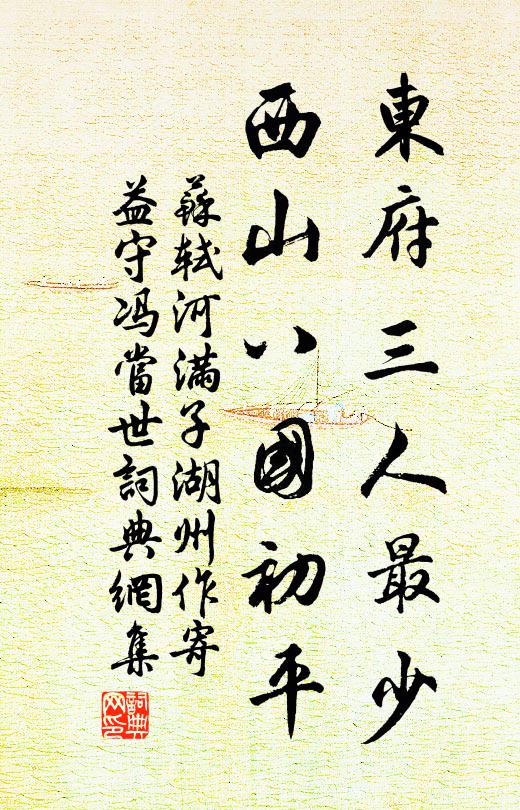 東府三人最少
西山八國初平
蘇軾河滿子湖州作寄
益守馮當世詞典網集
詞典網印